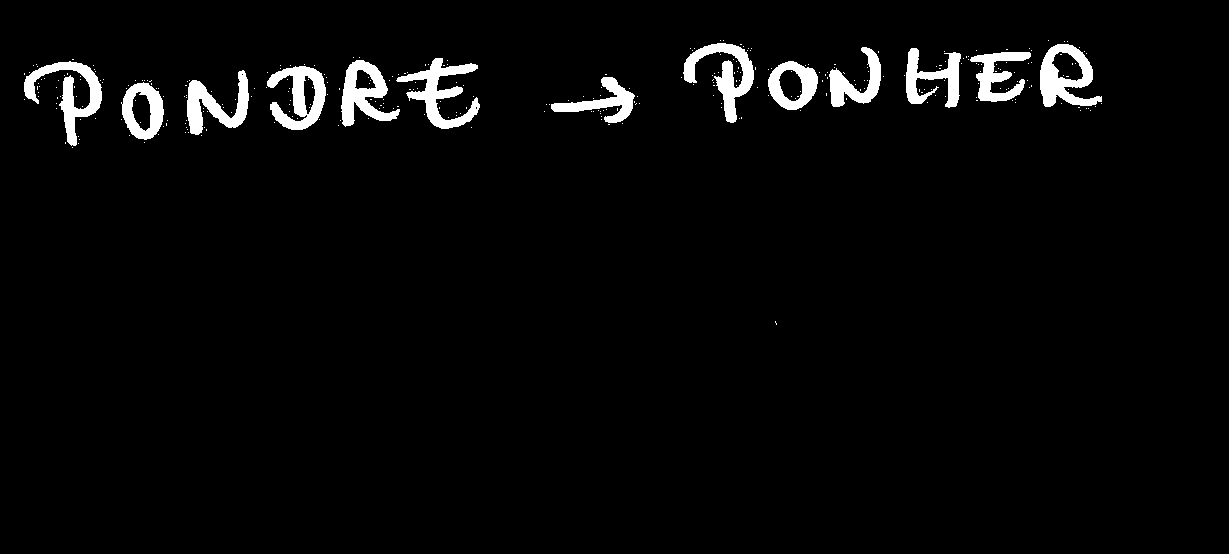 PONDRE → PONHER